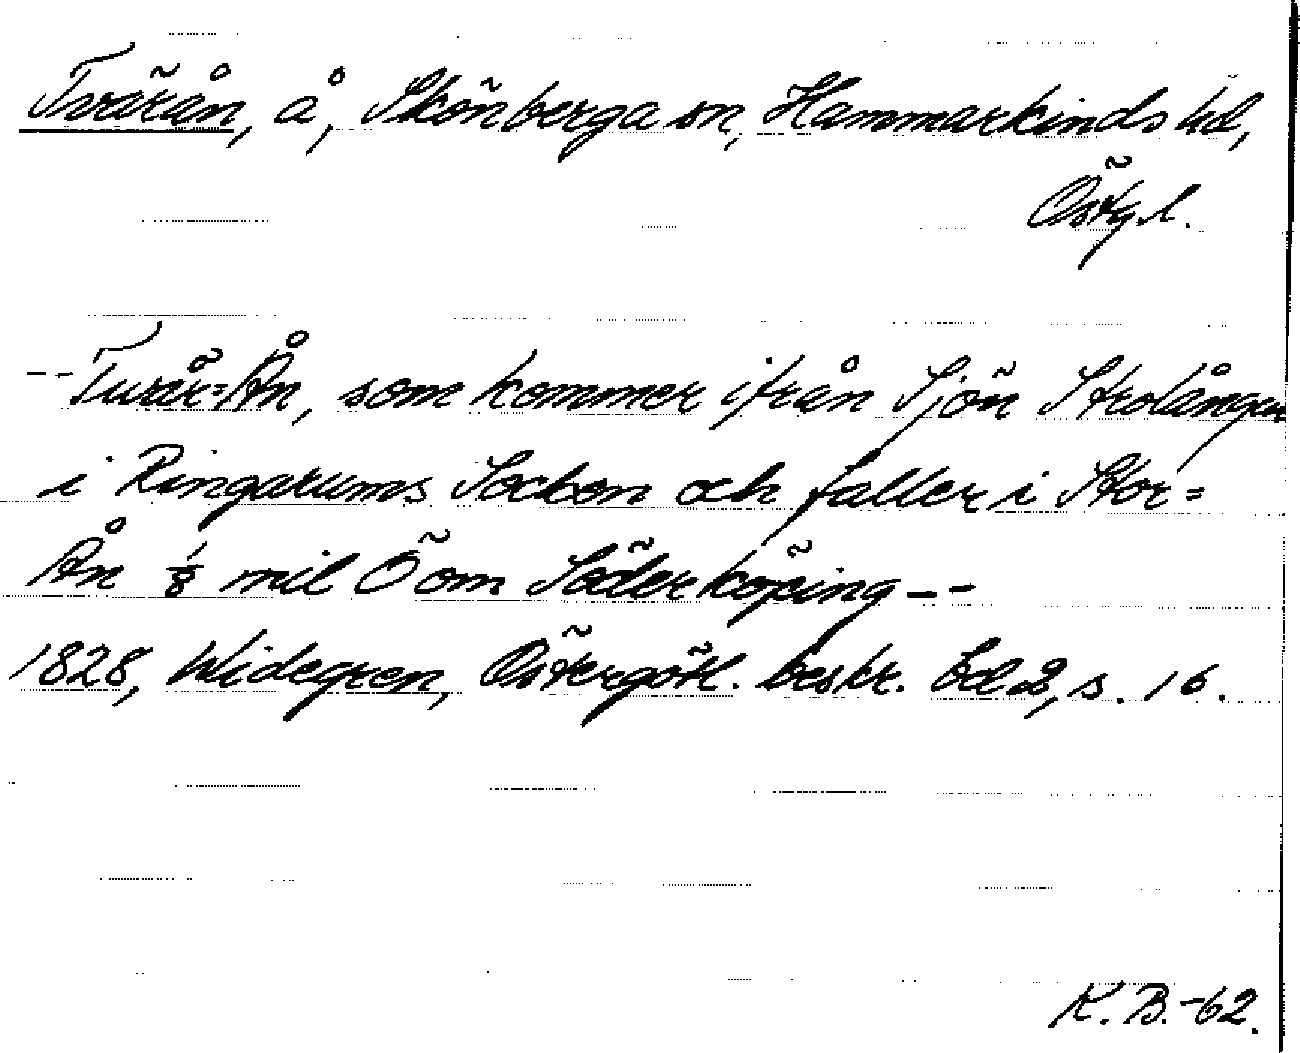 Tvärån, å, Skönberga sn, Hammarkinds hd,
Östg.l.
-- Tvär=Ån, som kommer ifrån Sjön Strolången
i Ringarums Socken och faller i Stor=
Ån 1/8 mil Ö om Söderköping --
1828, Widegren, Östergötl. beskr. bd 2, s. 16.
K. B. -62.